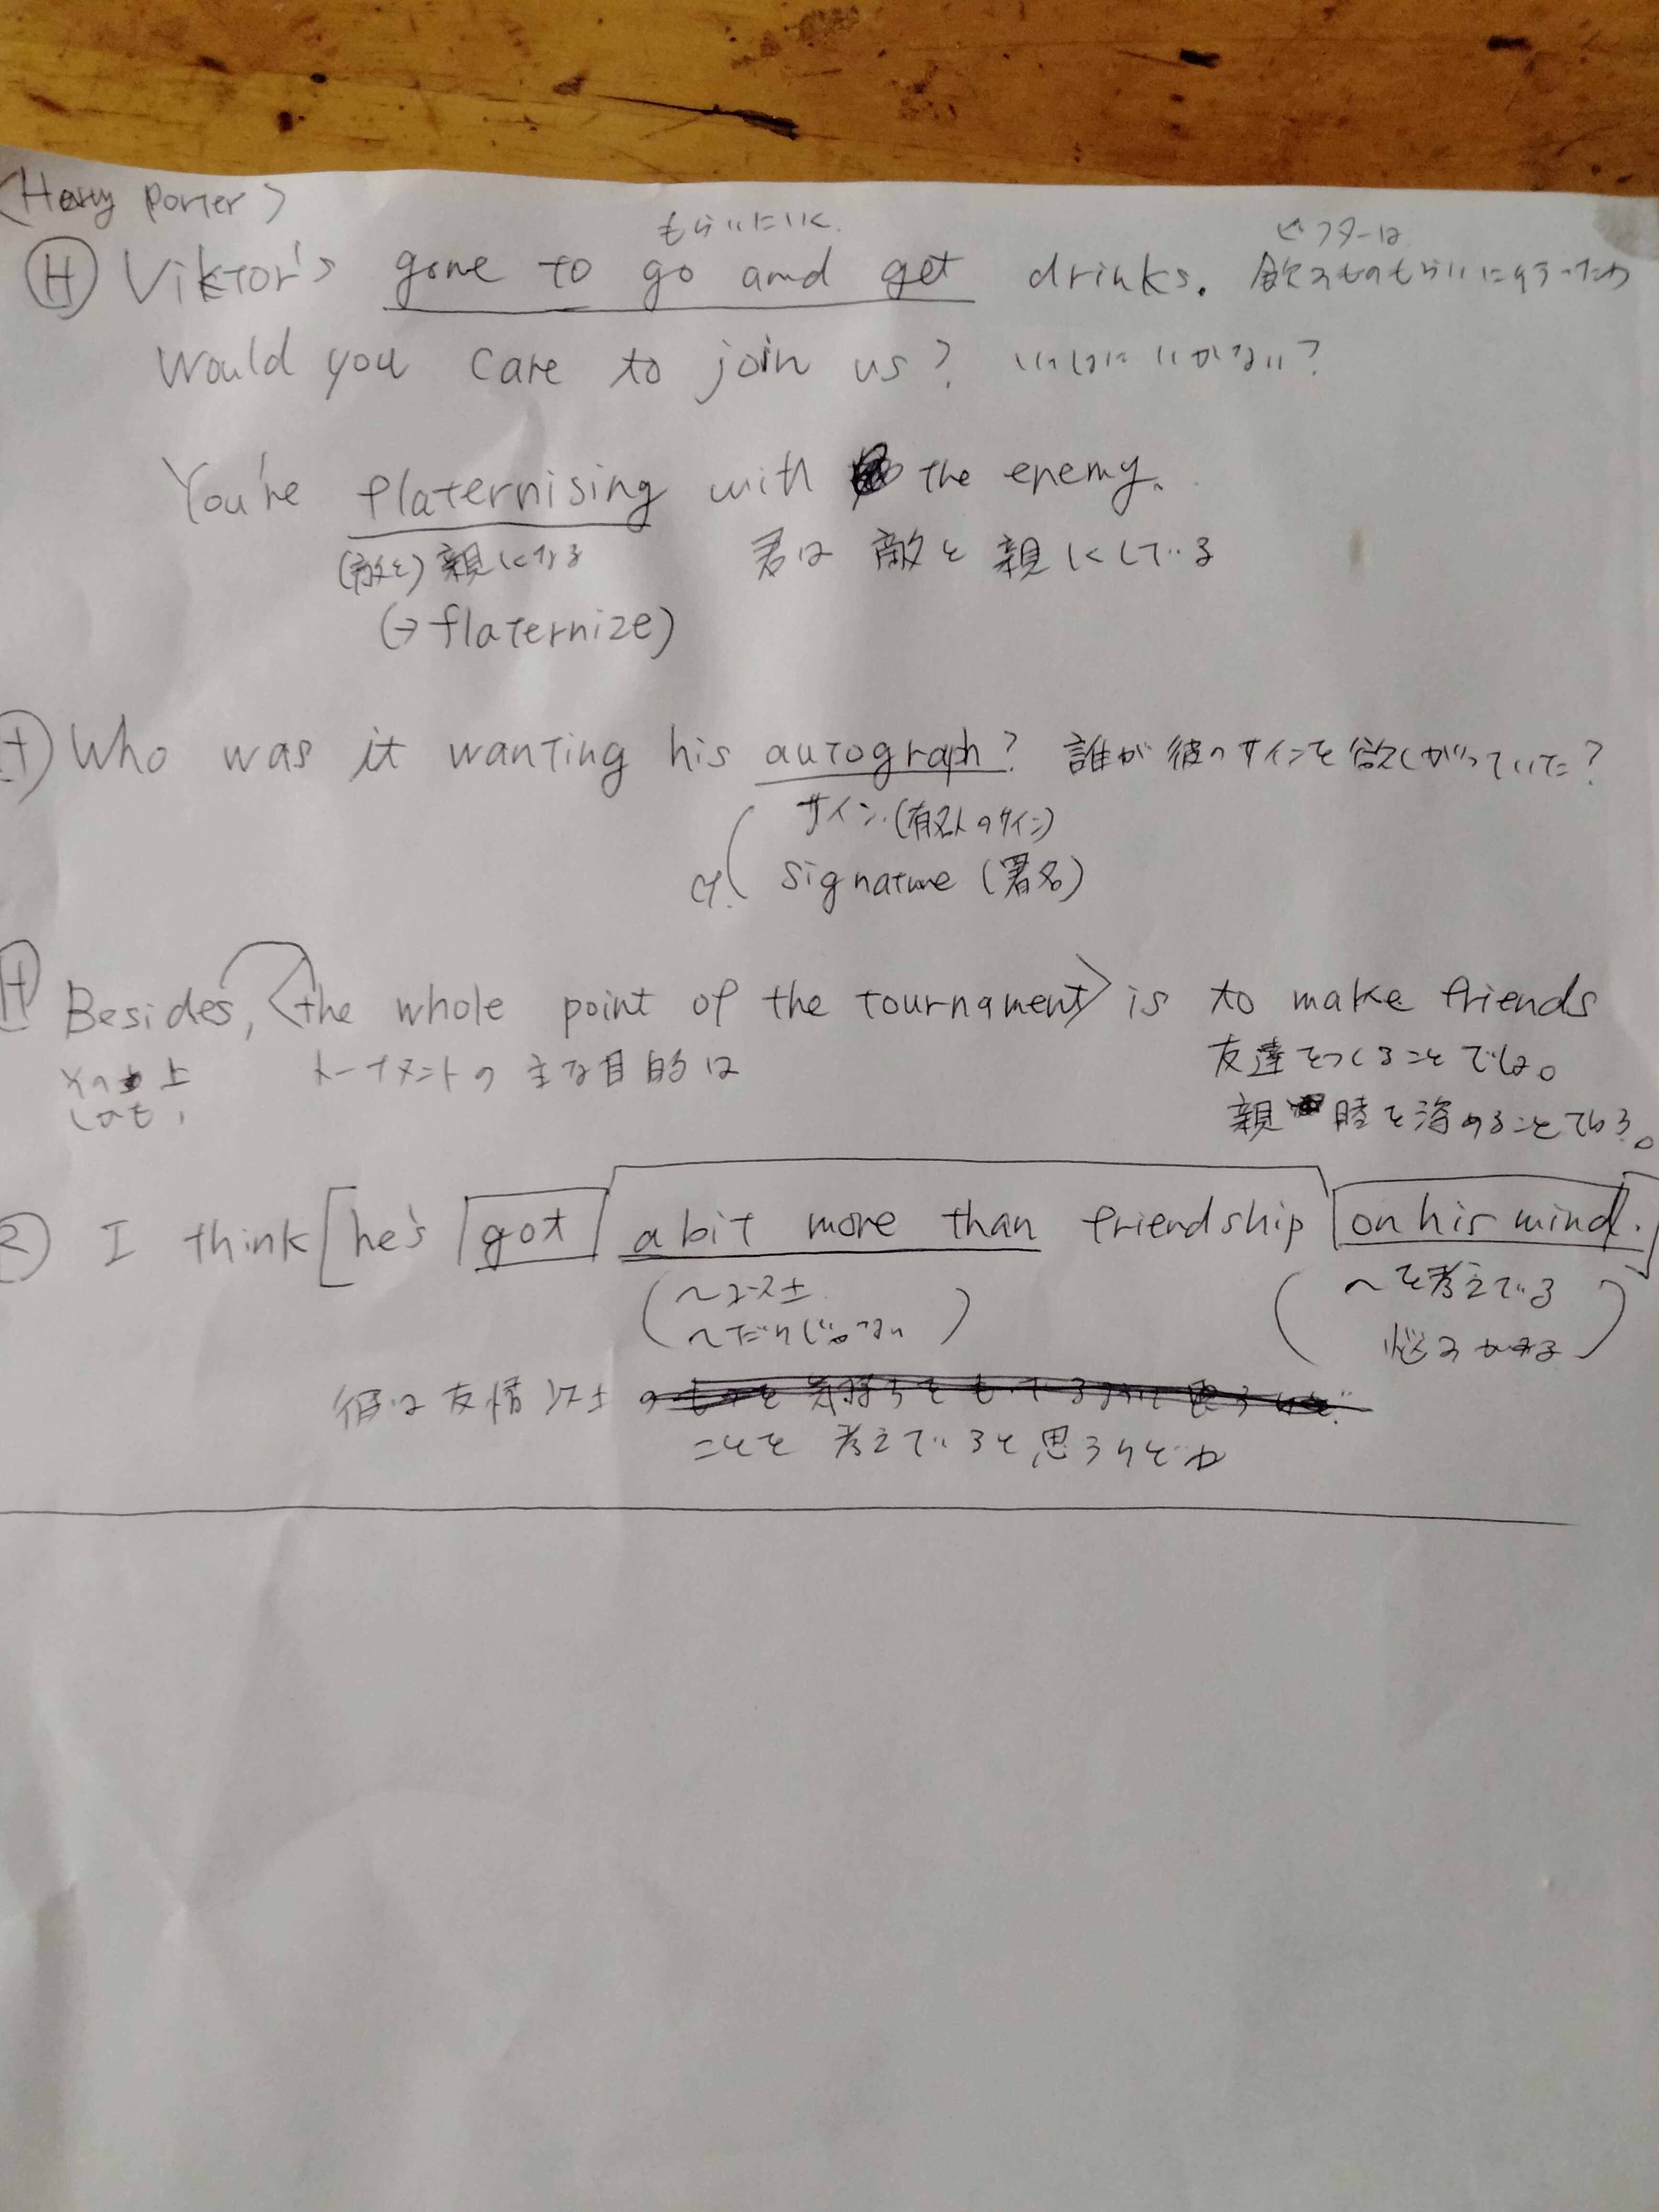 <Harry Porter>
もらいにいく ビクターは
Ⓗ Viktor's gone to go and get drinks. 飲みものもらいに行ったわ
Would you care to join us? いっしょにいかない?
You're flaternising with the enemy.
(敵と)親しくなる 君は敵と親しくしている
(→flaternize)
Ⓗ Who was it wanting his autograph? 誰が彼のサインを欲しがっていた?
サイン(有名人のサイン)
cf. signature (署名)
Ⓗ Besides, <the whole point of the tournament> is to make friends
その上 トーナメントの主な目的は 友達をつくることでしょ。
しかも, 親睦を深めることである。
Ⓡ I think [he's got a bit more than friendship on his mind.]
(〜以上 (〜を考えている
〜だけじゃない) 悩ませる)
彼は友情以上の
ことを考えていると思うけどな